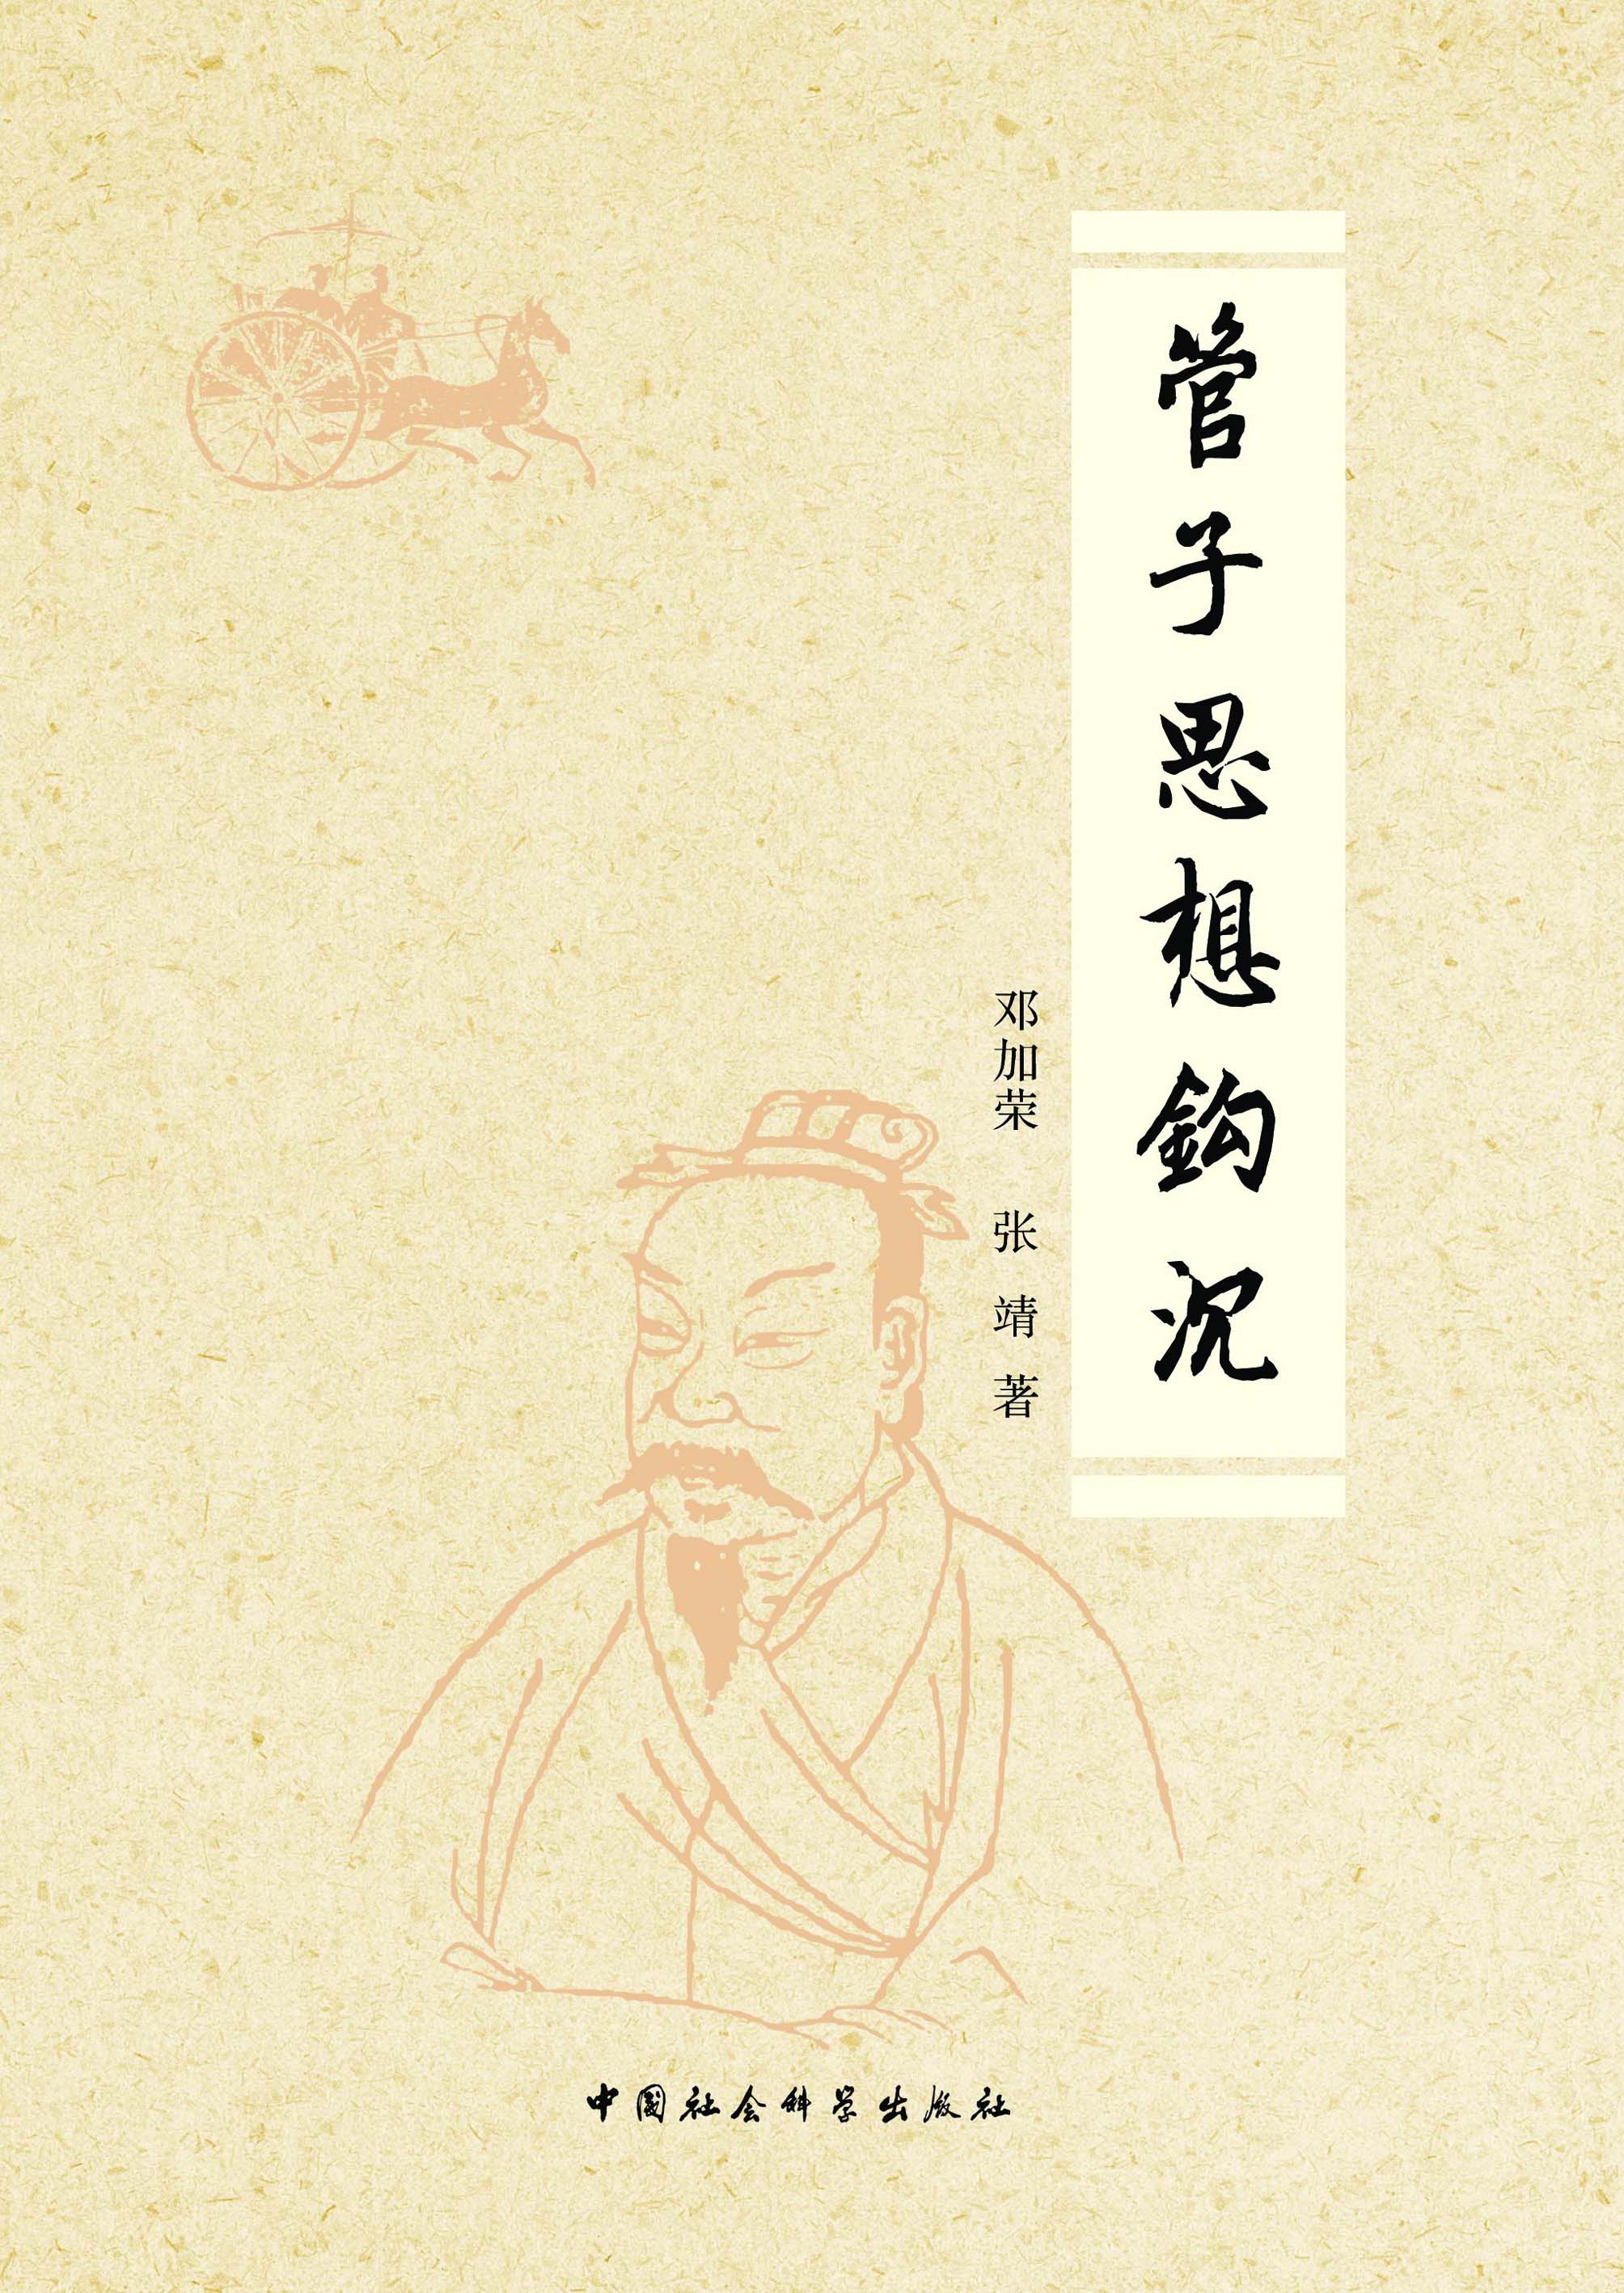 管子思想鈎沉
邓加荣 张靖 著
中国社会科学出版社